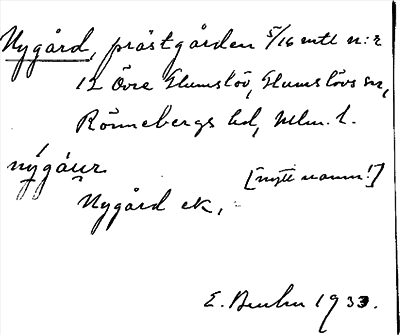 Nygård, prästgården 5/16 mtl n:r
12 Övre Glumslöv, Glumslövs sn,
Rönnebergs hd, Mlm. l.
nýgá̀ur
[nytt namn!]
Nygård ek,
E. 1933.